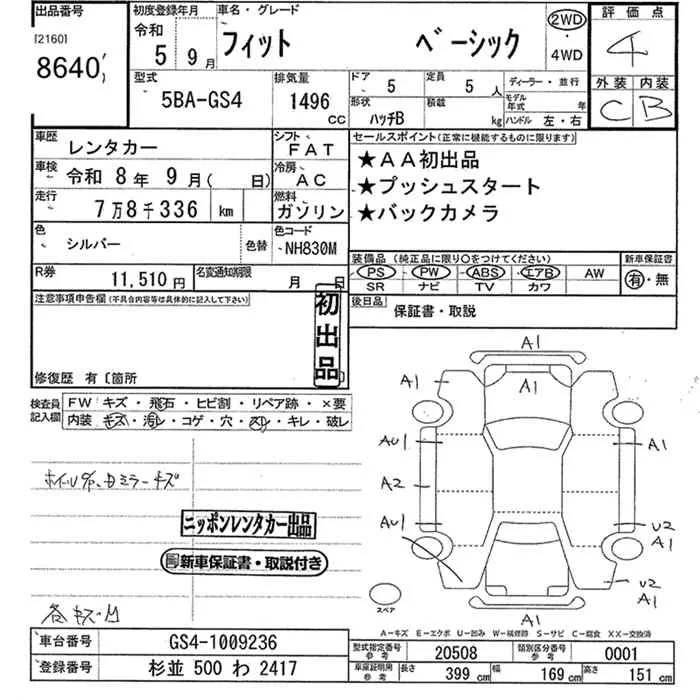 出品番号
[2160]
8640
初度登録年月
令和
5 9月
車名・グレード
フィット ベーシック
2WD
・
4WD
評価点
4
外装 内装
C B
型式
5BA-GS4
排気量
1496
CC
ドア 5
定員 5人
形状 ハッチB
積載 kg
ディーラー・並行
モデル年式 年
ハンドル 左・右
車歴 レンタカー
シフト FAT
車検 令和 8年 9月( 日)
冷房 AC
走行 7万8千336 km
燃料 ガソリン
色 シルバー 色替
色コード NH830M
R券 11,510円
名変通知期限 月 日
セールスポイント(正常に機能するものに限ります)
★AA初出品
★プッシュスタート
★バックカメラ
装備品(純正品に限り○をつけてください)
PS PW ABS エアB AW
SR ナビ TV カワ
新車保証書
有・無
後日品 保証書・取説
注意事項申告欄(不具合内容等は具体的に記入して下さい)
初出品
修復歴 有〔箇所
検査員記入欄
FW キズ・飛石・ヒビ割・リペア跡・×要
内装 キズ・汚レ・コゲ・穴・スレ・キレ・破レ
キズ
ニッポンレンタカー出品
新車保証書・取説付き
A1
A1
A1
A1
AU1
A1
A2
AU1
U2
A1
U2
A1
A1
スペア
A-キズ E-エクボ U-凹み W-補修跡 S-サビ C-腐食 XX-交換済
車台番号 GS4-1009236
登録番号 杉並 500 わ 2417
型式指定番号 参考 20508
類別区分番号 参考 0001
車庫証明用 参考 長さ 399 cm 幅 169 cm 高さ 151 cm